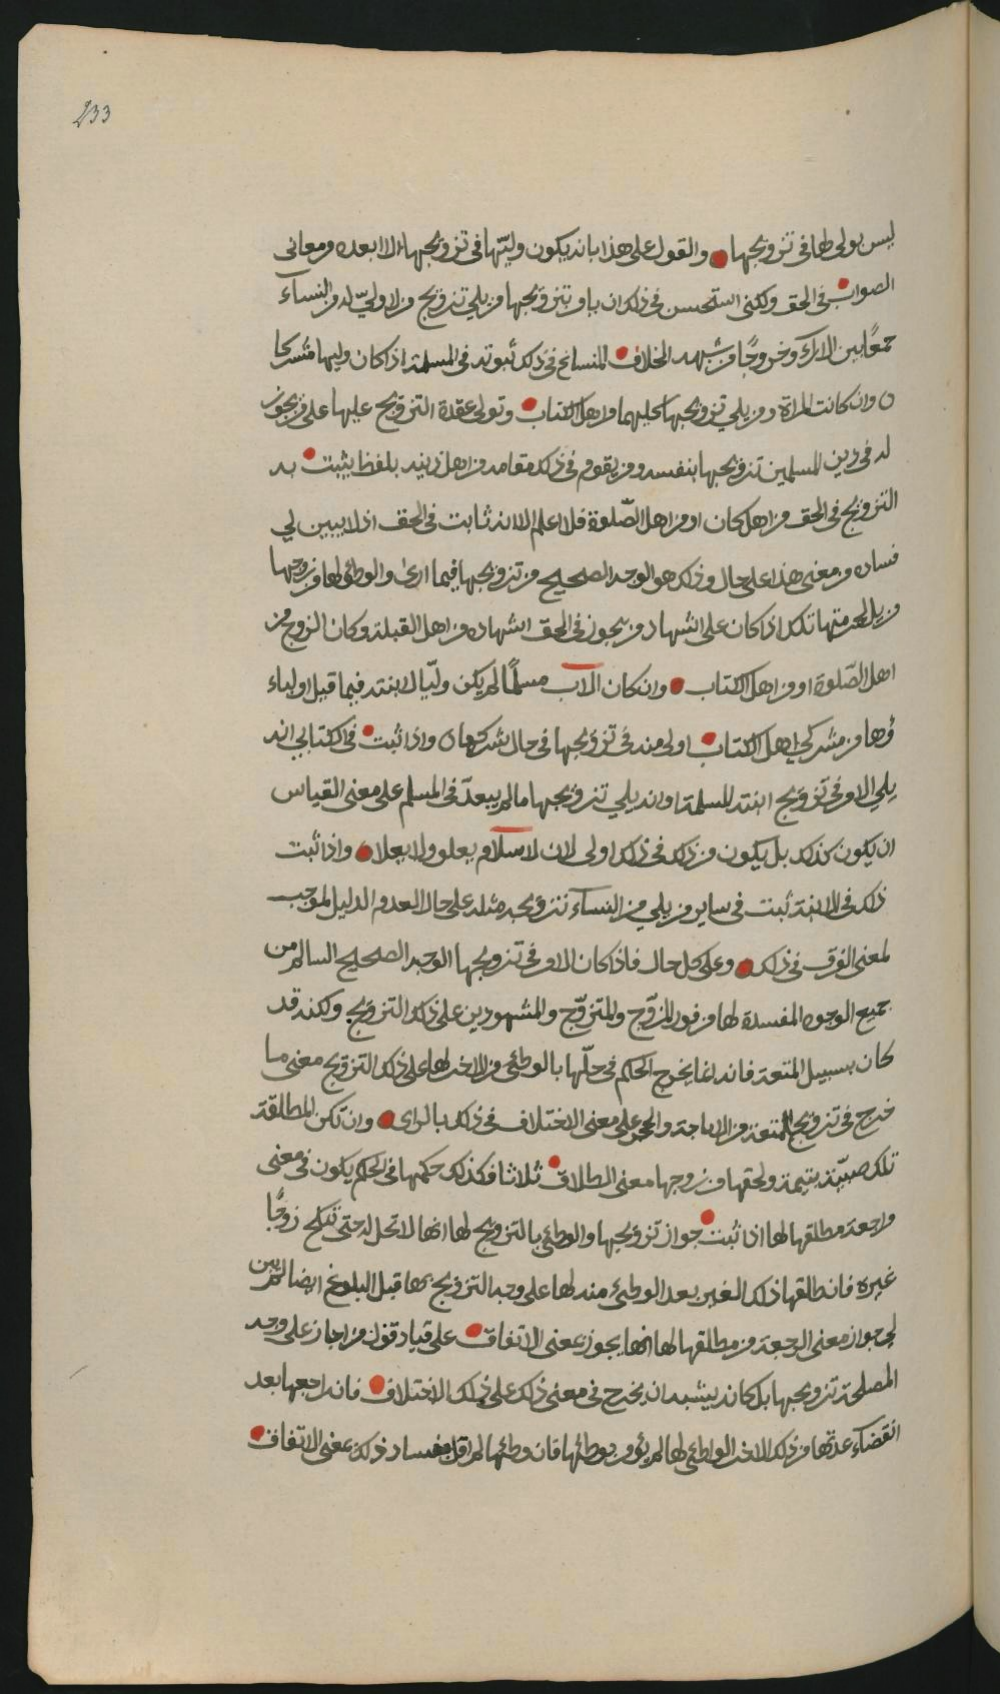 233
ليس بولي لها في تزويجها والقول على هذا بانه يكون وليّها في تزويجها الا ابعده ومعاني
الصواب في الحق ولكني استحسن في ذلك ان يامر بتزويجها من يلي تزويج من لا وليّ له من النساء
جمعًا بين الاراء وخروجًا من شبهة الخلاف المنساغ في ذلك ثبوته في المسلمة اذا كان وليها مشركا
وان كانت المراة ومن يلي تزويجها كليهما من اهل الكتاب وتولى عقدة التزويج عليها على من يجوز
له في دين المسلمين تزويجها بنفسه ومن يقوم في ذلك مقامه من اهل دينه بلفظ يثبت به
التزويج في الحق من اهل كان او من اهل الصّلوة فلا اعلم الا انه ثابت في الحق اذ لا يبين لي
فساده من معنى هذا على حال وذلك هو الوجه الصحيح من تزويجها فيما ارى والوطئ لها من زوجها
مزيل لحرمتها تلك اذا كان على اشهاد من يجوز في الحق اشهاده من اهل القبلة وكان الزوج من
اهل الصّلوة او من اهل الكتاب وان كان الاب مسلمًا لم يكن وليّا لابنته فيما قيل اولياء
ؤها من مشركي اهل الكتاب اولى منه في تزويجها في حال شركها واذا ثبت في الكتابي انه
يلي الامر في تزويج ابنته المسلمة وانه يلي تزويجها ما لم يبعد في المسلم على معنى القياس
ان يكون كذلك بل يكون من ذلك في ذلك اولى لان الاسلام يعلو ولا يعلا واذا ثبت
ذلك في الابنة ثبت في ساير من يلي من النساء تزويجه مثله على حال العدم الدليل الموجب
لمعنى الفرق في ذلك وعلى كل حال فاذا كان الامر في تزويجها الوجه الصحيح السالم من
جميع الوجوه المفسدة لها من المزوّج والمتزوّج والمشهودين على ذلك التزويج ولكنه قد
كان بسبيل المتعة فانه انما يخرج الحكم في حلّها بالوطئ من الاخر لها على ذلك التزويج معنى ما
خرج في تزويج المتعة من الاباحة والحجر على معنى الاختلاف في ذلك بالراي وان تكن المطلقة
تلك صبيّة يتيمة ولحقها من زوجها معنى الطلاق ثلاثا فكذلك حكمها في الحكم يكون في معنى
مراجعة مطلقها لها اذا ثبت جواز تزويجها والوطئ بالتزويج لها انها لا تحل له حتى تنكح زوجًا
غيره فان طلقها ذلك الغير بعد الوطئ منه لها على وجه التزويج بها قبل البلوغ ايضا لم يبن
لي جواز معنى الرجعة من مطلقها لها انها يجوز بمعنى الاتفاق على قياد قول من اجاز على وجه
المصلحة تزويجها بل كانه يشبه ان يخرج في معنى ذلك على ذلك الاختلاف فان راجعها بعد
انقضاء عدتها من ذلك الاخر الواطئ لها لم يؤمر بوطئها فان وطئها لم اقل بفساد ذلك بمعنى الاتفاق